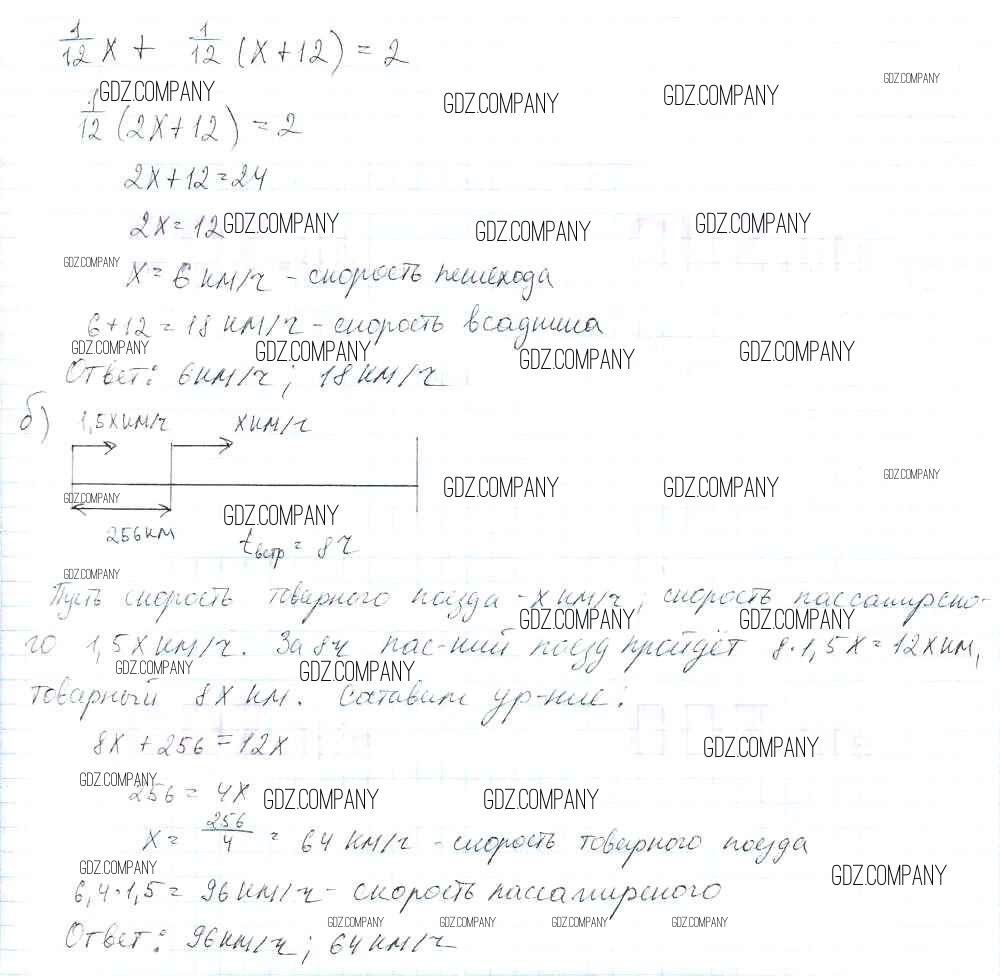 1/12 x + 1/12 (x+12) = 2
GDZ.COMPANY
GDZ.COMPANY GDZ.COMPANY GDZ.COMPANY
1/12 (2x+12) = 2
2x+12=24
2x=12 GDZ.COMPANY GDZ.COMPANY GDZ.COMPANY
GDZ.COMPANY
x = 6 км/ч - скорость пешехода
6+12 = 18 км/ч - скорость всадника
GDZ.COMPANY GDZ.COMPANY GDZ.COMPANY GDZ.COMPANY
Ответ: 6км/ч; 18 км/ч
б) 1,5x км/ч x км/ч
GDZ.COMPANY GDZ.COMPANY GDZ.COMPANY
GDZ.COMPANY GDZ.COMPANY
256 км tвстр = 8 ч
GDZ.COMPANY
Пусть скорость товарного поезда - x км/ч, скорость пассажирско-
GDZ.COMPANY GDZ.COMPANY
го 1,5x км/ч. За 8ч пас-кий поезд пройдёт 8·1,5x = 12x км,
GDZ.COMPANY GDZ.COMPANY
товарный 8x км. Составим ур-ние:
8x + 256 = 12x GDZ.COMPANY
GDZ.COMPANY
256 = 4x GDZ.COMPANY GDZ.COMPANY
x = 256/4 = 64 км/ч - скорость товарного поезда
GDZ.COMPANY GDZ.COMPANY
6,4·1,5 = 96 км/ч - скорость пассажирского
GDZ.COMPANY GDZ.COMPANY GDZ.COMPANY GDZ.COMPANY
Ответ: 96км/ч; 64 км/ч